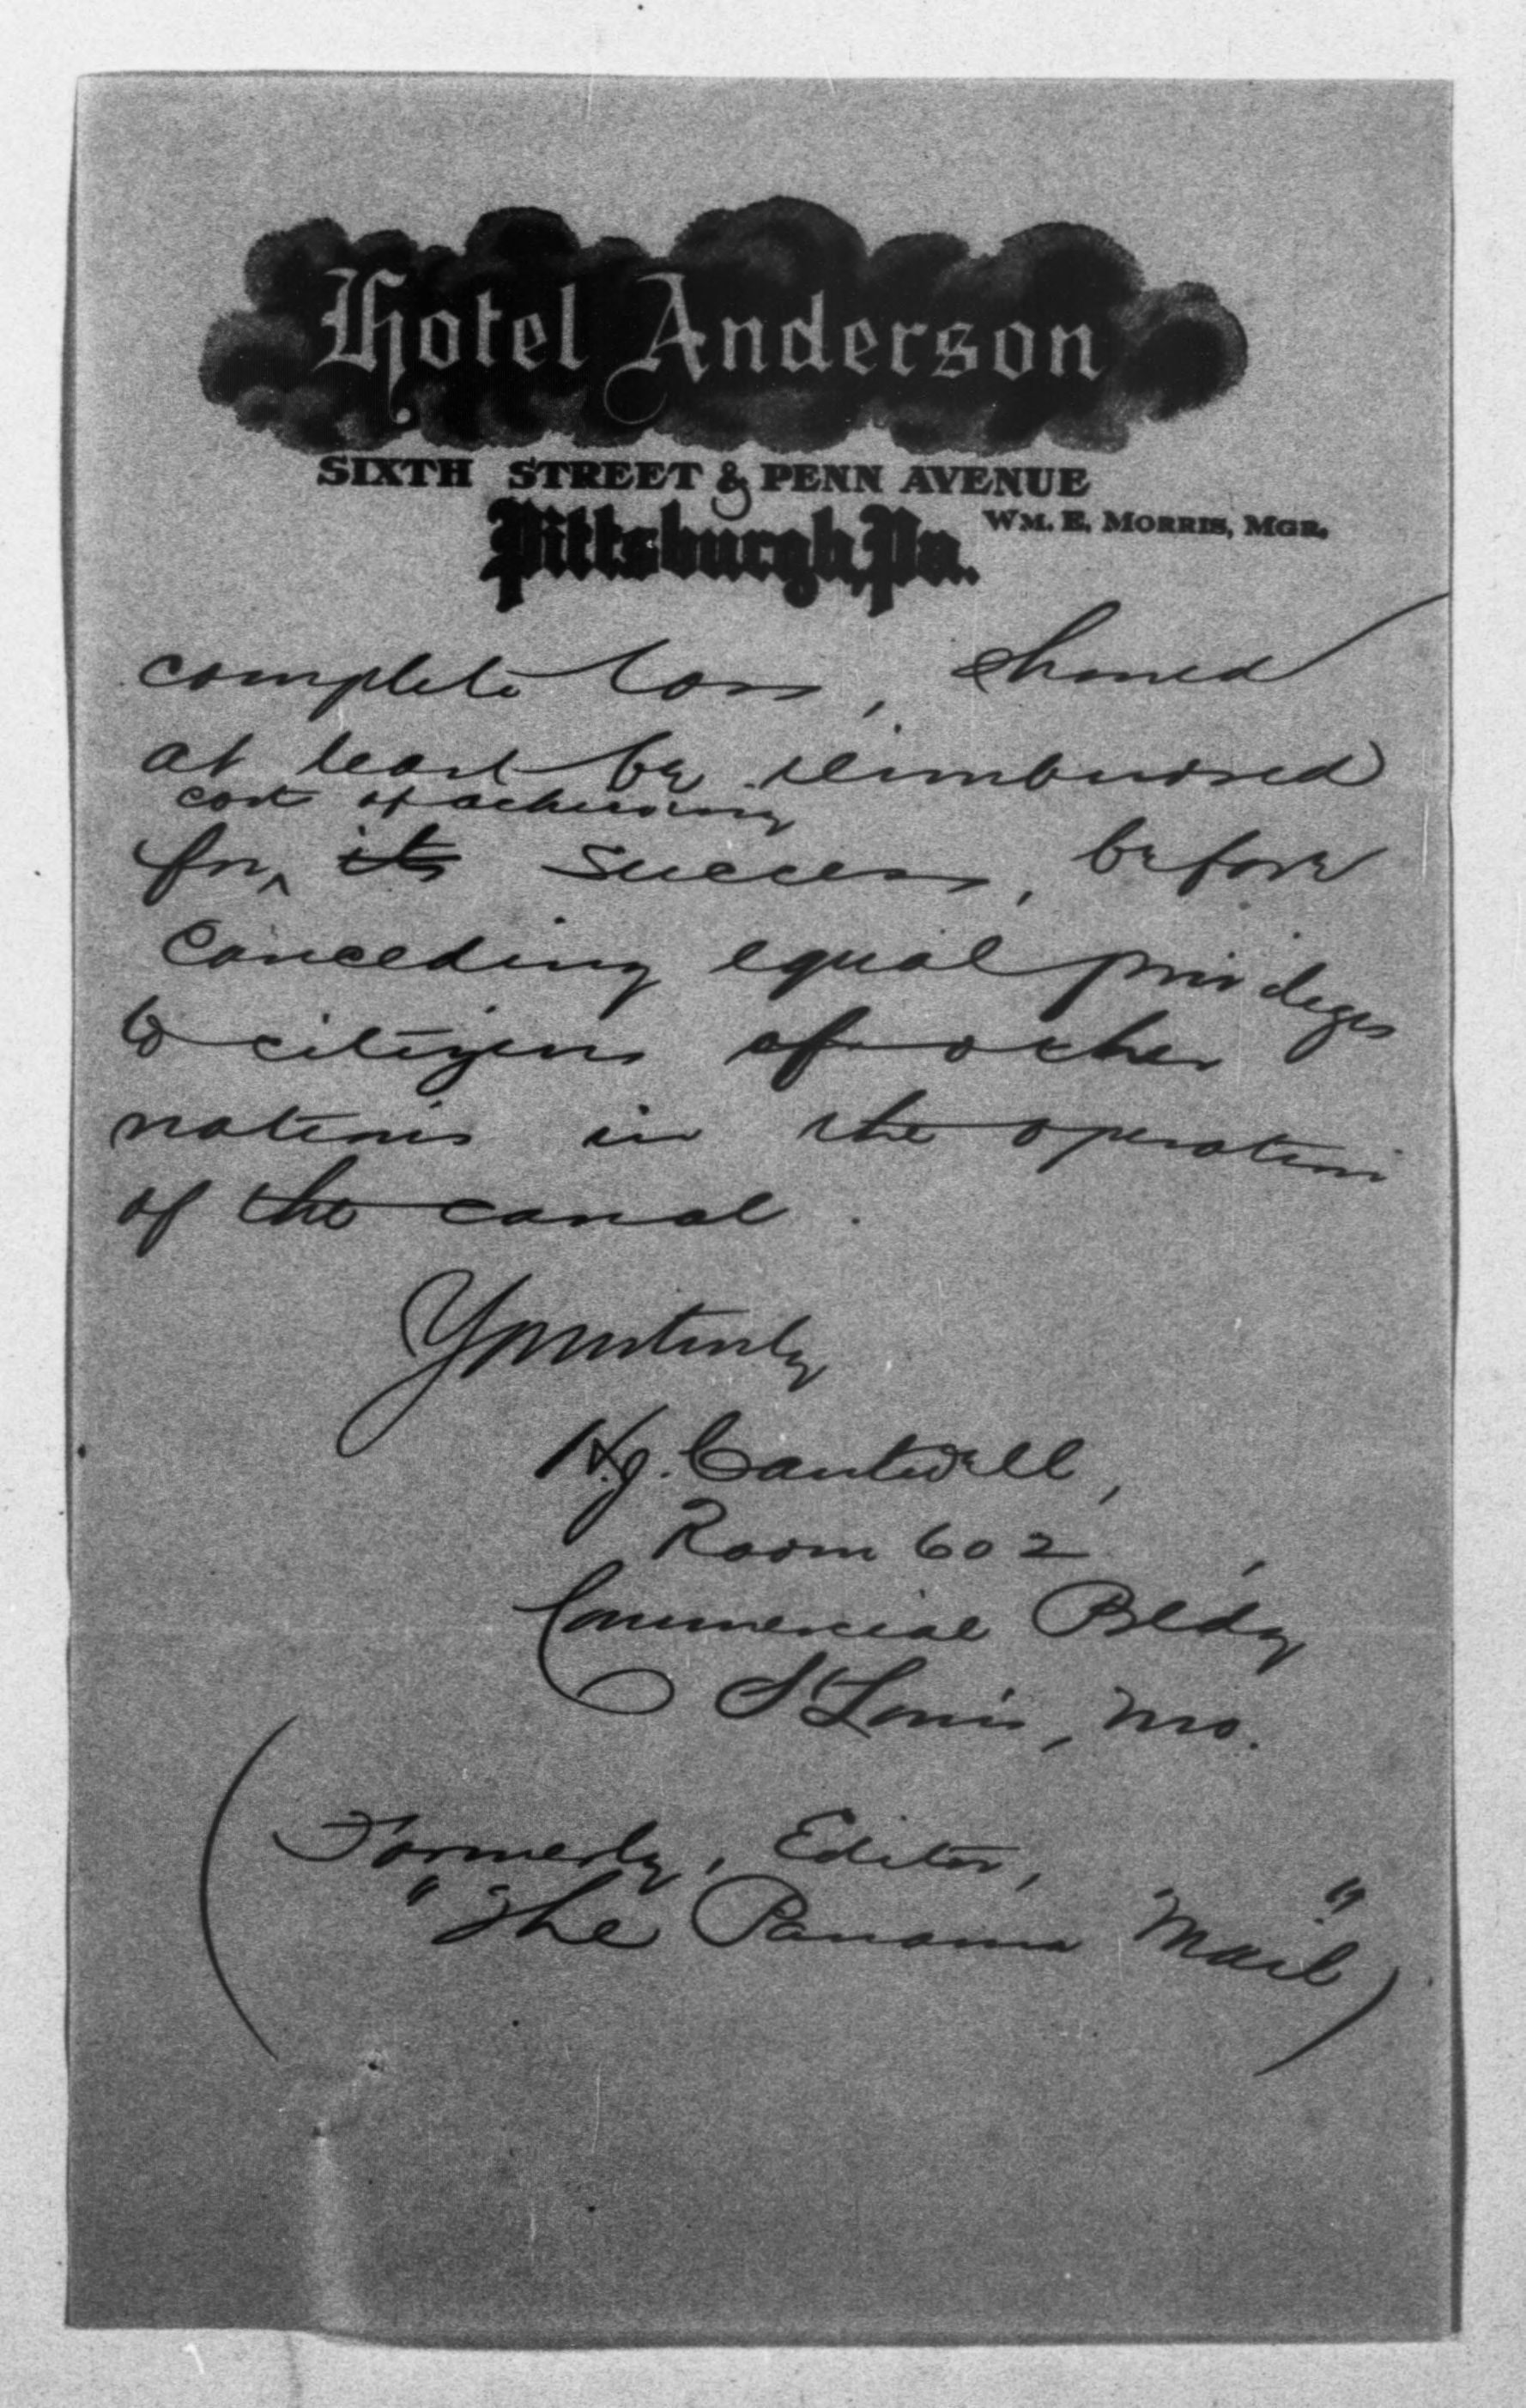 Hotel Anderson
SIXTH STREET & PENN AVENUE
WM. E. MORRIS, MGR.
Pittsburgh, Pa.
complete loss, should
at least be reimbursed
cost of achieving
for ^ its success, before
conceding equal privileges
to citizens of other
nations in the operation
of the canal.
Yours truly
H.J. Cantwell,
Room 602,
Commercial Bldg
St Louis, Mo.
(Formerly, Editor,
"The Panama Mail")